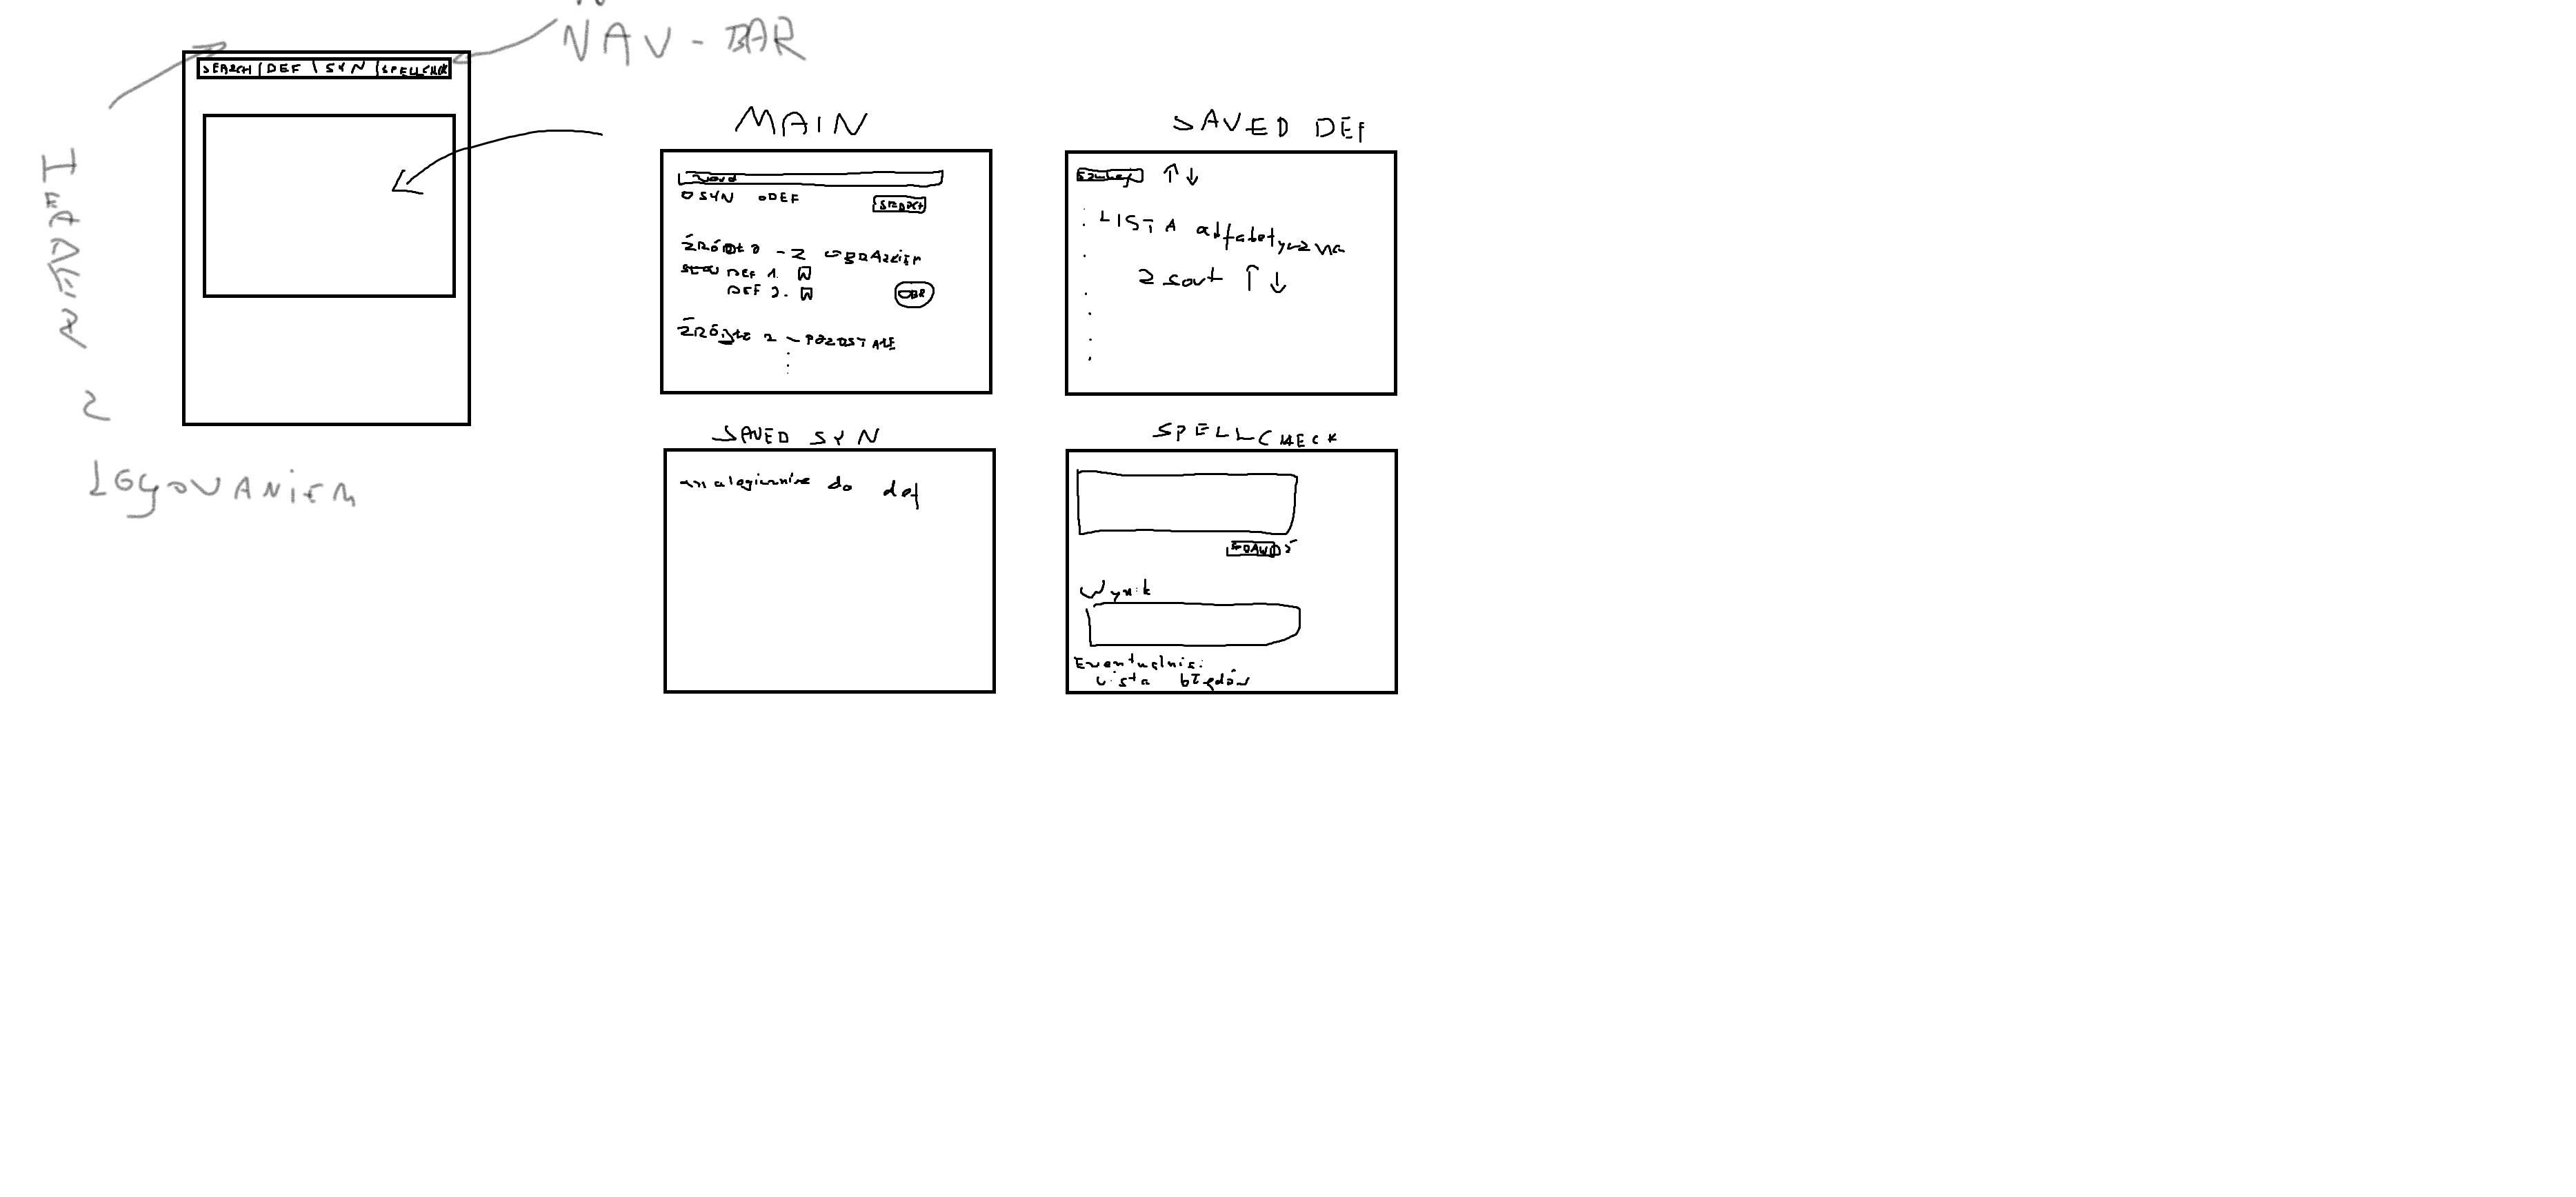 NAV-BAR
SEARCH DEF SYN SPELLCHECK
HEADER
Z
LOGOVANIEM
MAIN
Word
SYN DEF
SEARCH
ŹRÓDŁO - Z OBRAZKIEM
DEF 1. W
DEF 2. W
OBR
ŹRÓDŁO 2 - POZOSTAŁE
SAVED DEF
Szukaj ↑↓
LISTA alfabetyczna
z sort ↑↓
SAVED SYN
analogicznie do def
SPELLCHECK
SPRAWDŹ
Wynik
Ewentualnie:
Lista błędów